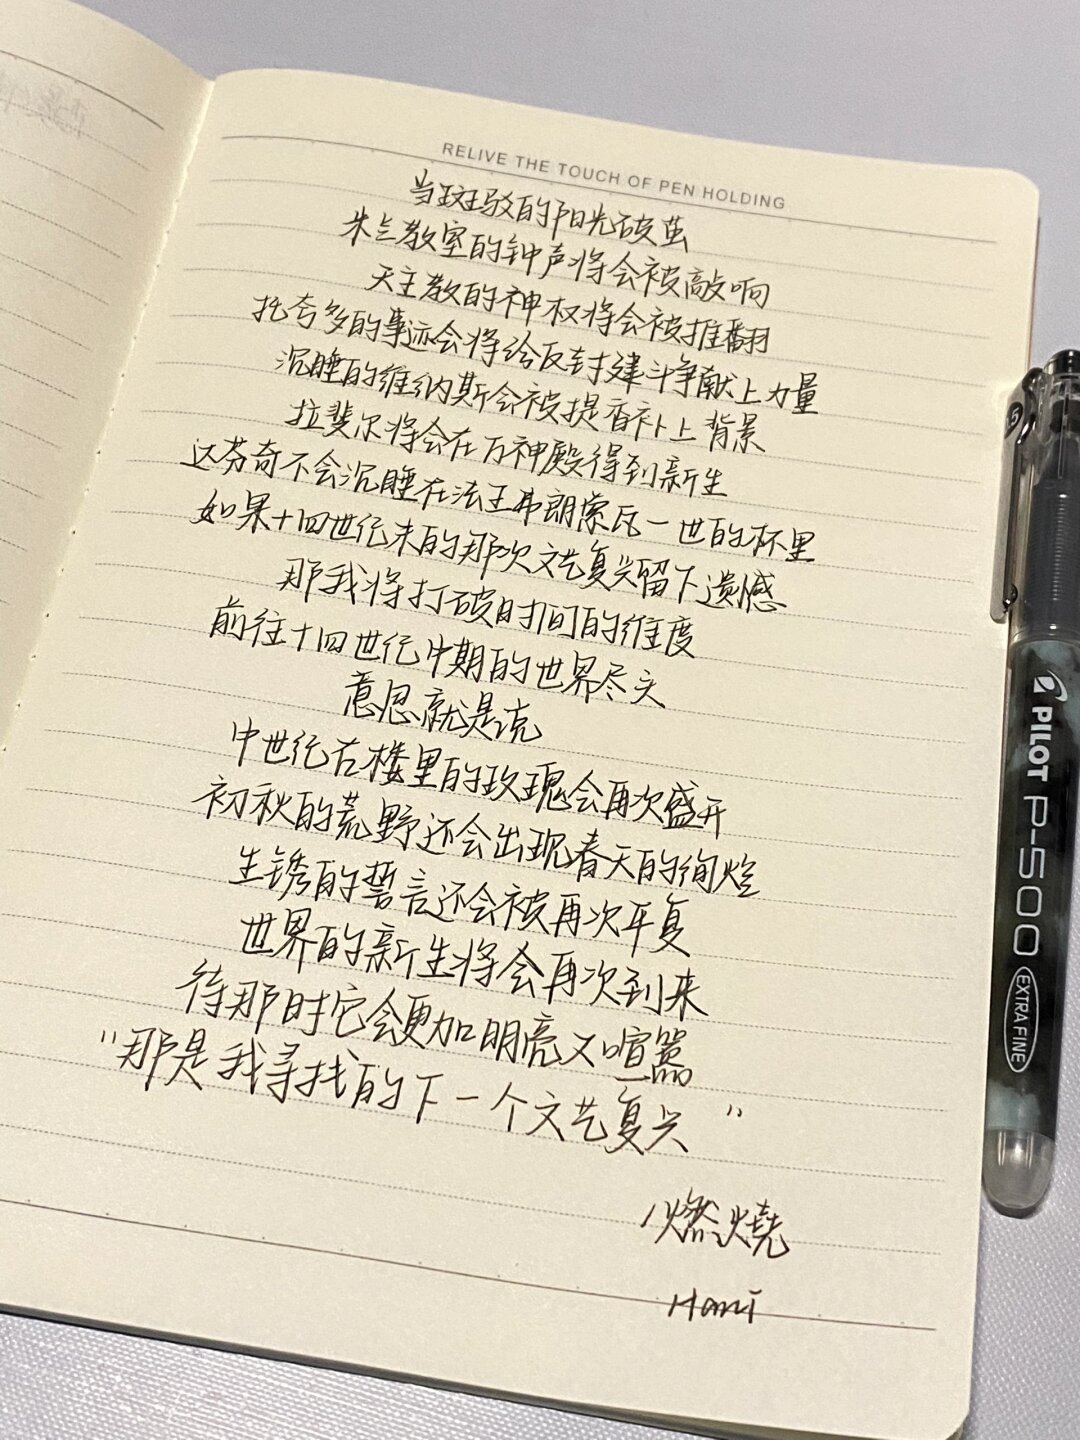 RELIVE THE TOUCH OF PEN HOLDING
当斑驳的阳光破茧
米兰教室的钟声将会被敲响
天主教的神权将会被推翻
托夸多的事迹会将给反封建斗争献上力量
沉睡的维纳斯会被提香补上背景
拉斐尔将会在万神殿得到新生
达芬奇不会沉睡在法王弗朗索瓦一世的怀里
如果十四世纪末的那次文艺复兴留下遗憾
那我将打破时间的维度
前往十四世纪中期的世界尽头
意思就是说
中世纪古楼里的玫瑰会再次盛开
初秋的荒野还会出现春天的绚烂
生锈的誓言还会被再次平复
世界的新生将会再次到来
待那时它会更加明亮又喧嚣
“那是我寻找的下一个文艺复兴”
燃燒
PILOT P-500
EXTRA FINE
5